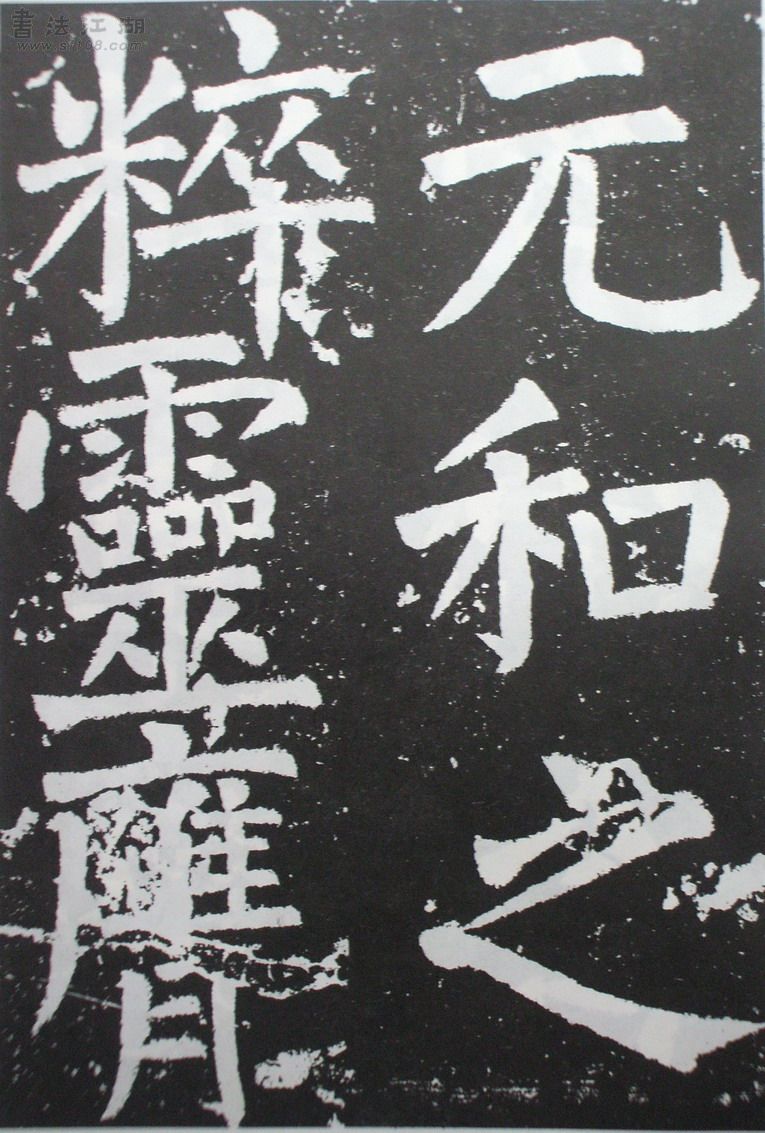 元和之
粹靈膺
書法江湖
www.sf108.com